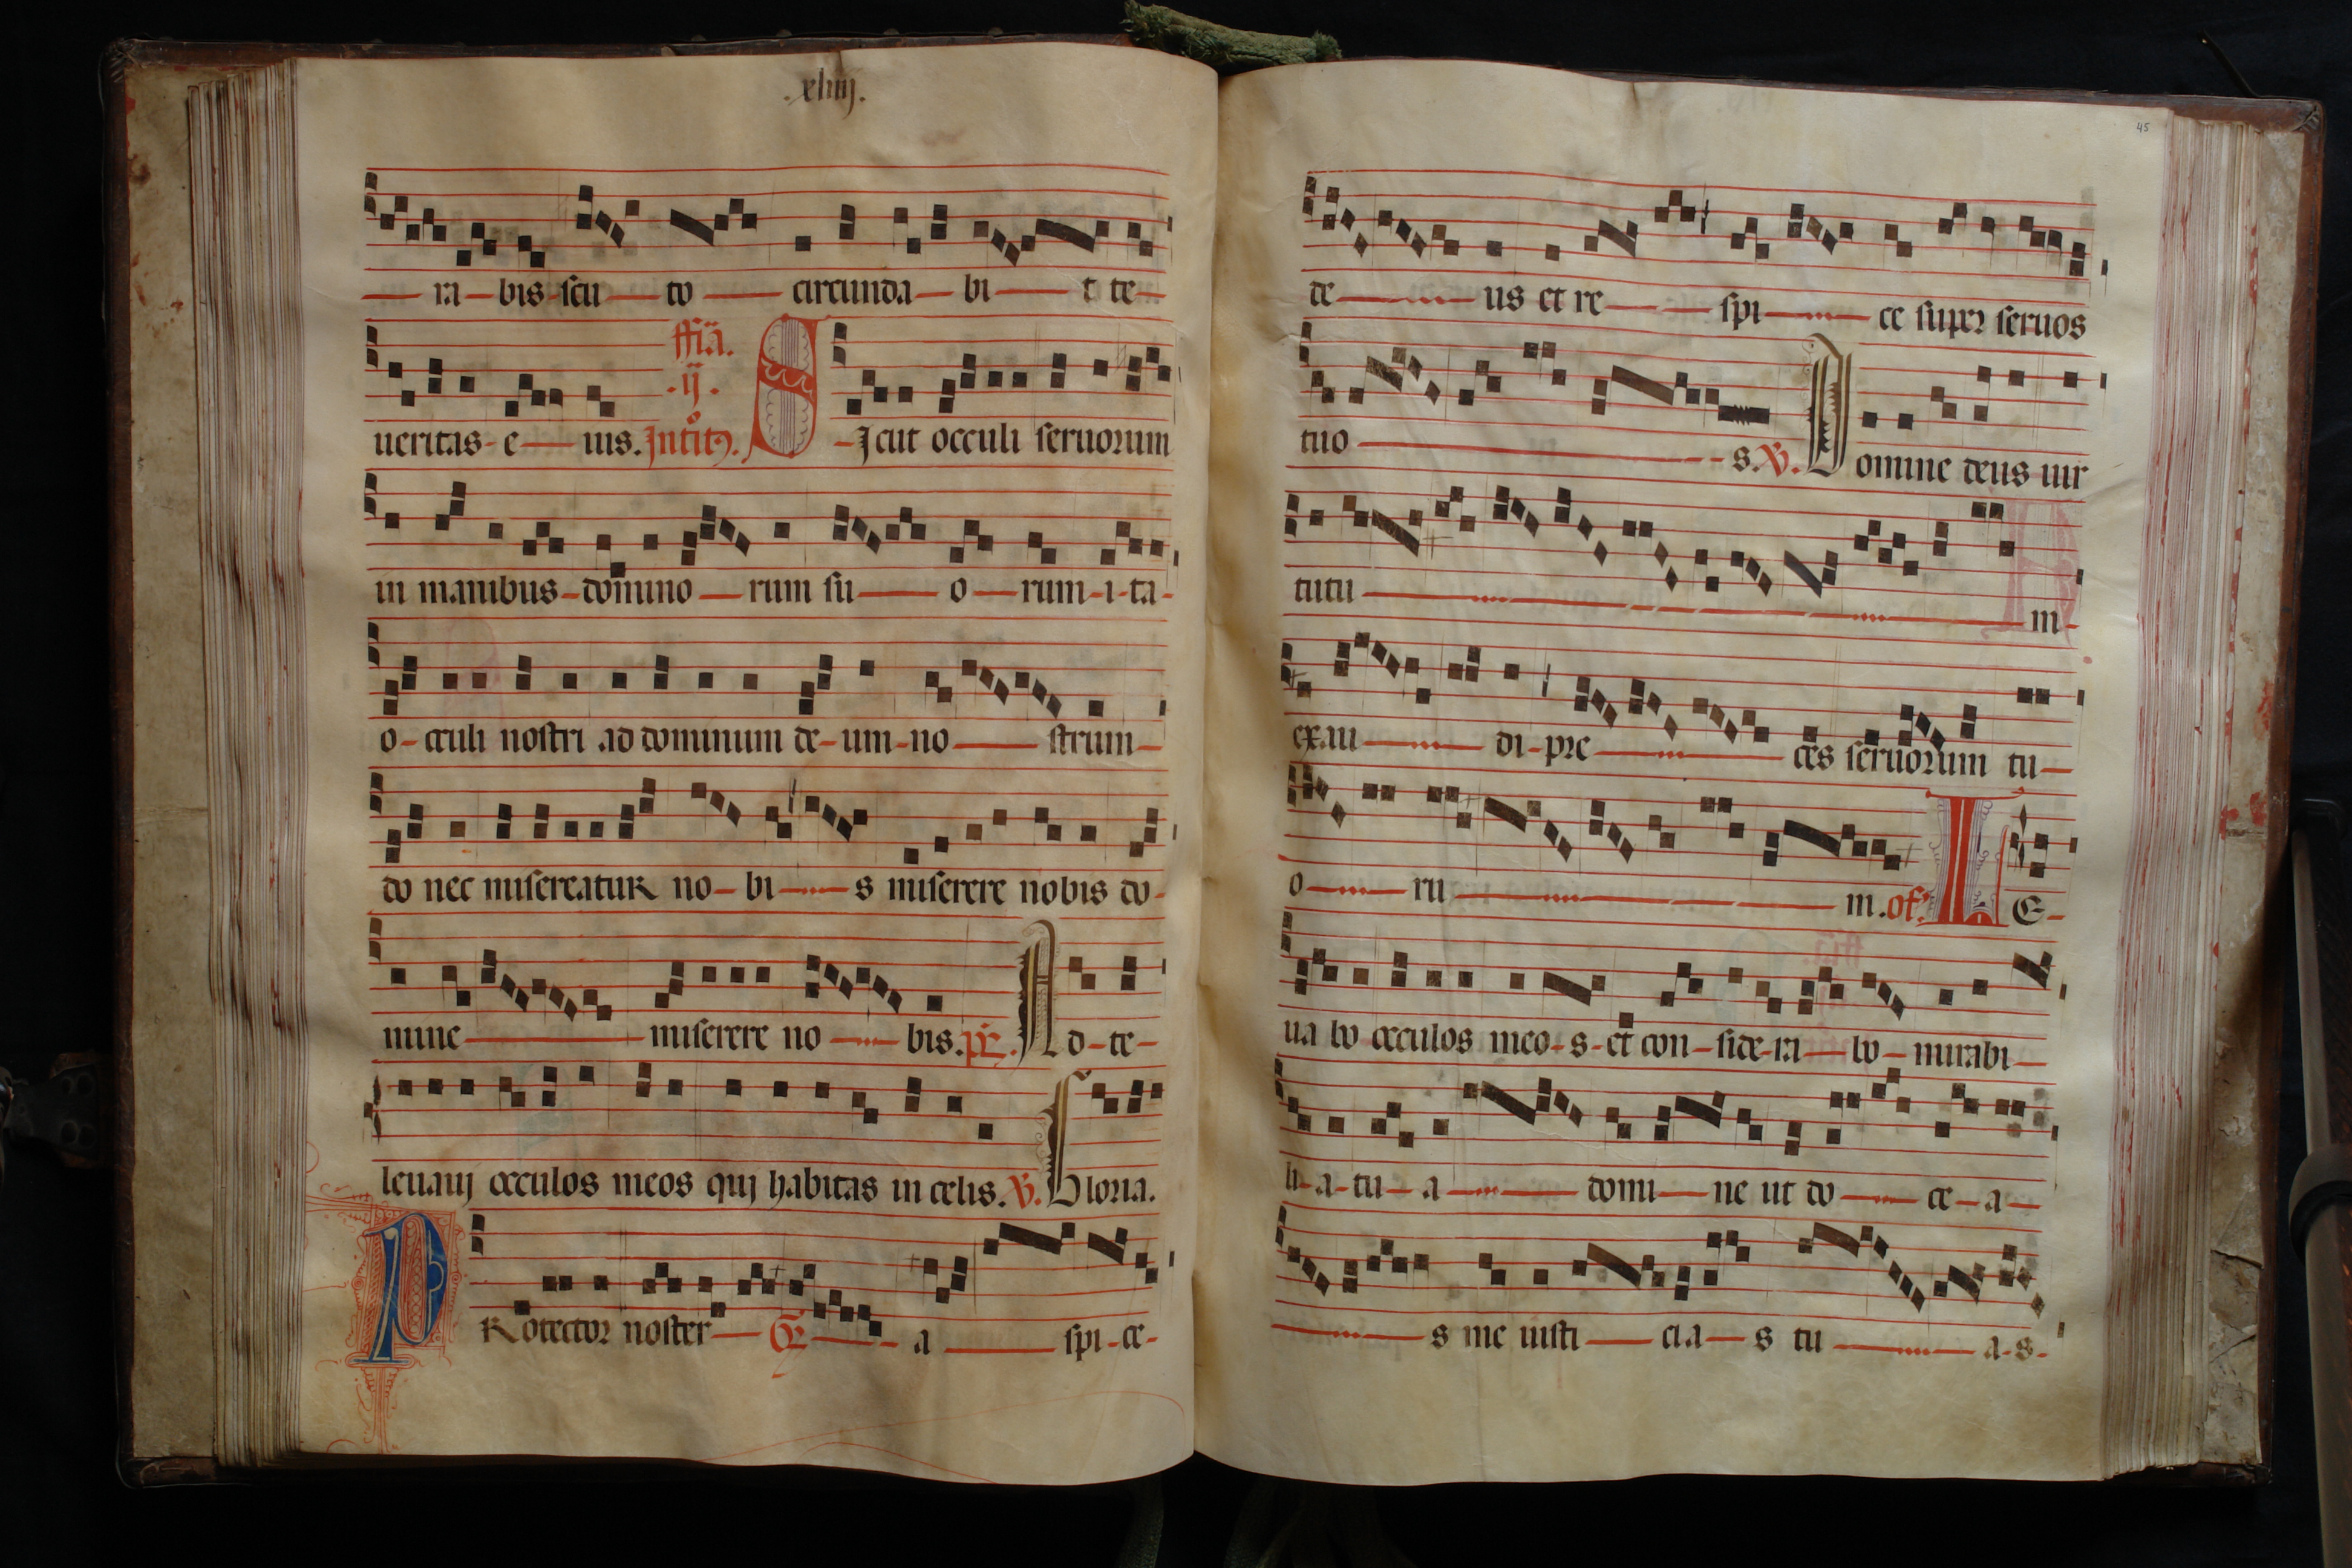 .xliiij.
ra bis scu to circunda bi t te
ueritas e ius. Intit9. S Icut occuli seruorum
ffia.
.ij.
in manibus domino rum su o rum i ta
o cculi nostri ad dominum de um no strum
do nec misereatur no bi s miserere nobis do
mine miserere no bis. ps. A d te
leuauij occulos meos quj habitas in celis. V. G loria.
P Rotector noster Gr a spi ce
45
de us et re spi ce super seruos
tuo s. V. D omine deus uir
tutu m
exau di pre ces seruorum tu
o ru m. of. L E
ua bo occulos meo s et con side ra bo mirabi
li a tu a domi ne ut do ce a
s me iusti cia s tu a s